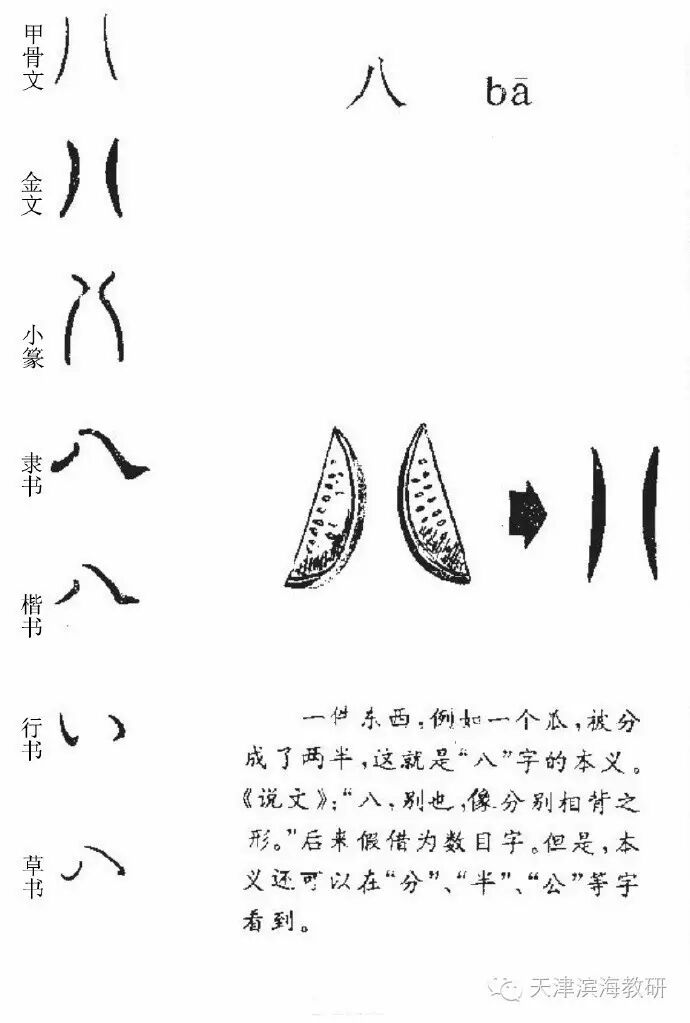 甲骨文
金文
小篆
隶书
楷书
行书
草书
八 bā
一件东西，例如一个瓜，被分
成了两半，这就是“八”字的本义。
《说文》：“八，别也，像分别相背之
形。”后来假借为数目字。但是，本
义还可以在“分”、“半”、“公”等字
看到。
天津滨海教研